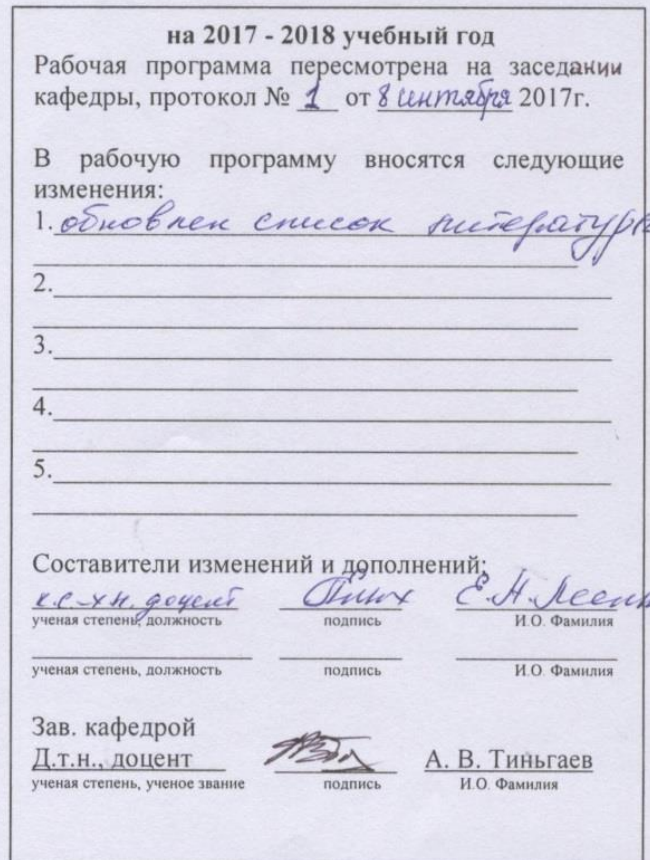 на 2017 - 2018 учебный год
Рабочая программа пересмотрена на заседании
кафедры, протокол № 1 от 8 сентября 2017г.
В рабочую программу вносятся следующие
изменения:
1. обновлен список литературы
2.
3.
4.
5.
Составители изменений и дополнений:
к.с-х н. доцент Е.Н.
ученая степень, должность подпись И.О. Фамилия
ученая степень, должность подпись И.О. Фамилия
Зав. кафедрой
Д.т.н., доцент А. В. Тиньгаев
ученая степень, ученое звание подпись И.О. Фамилия